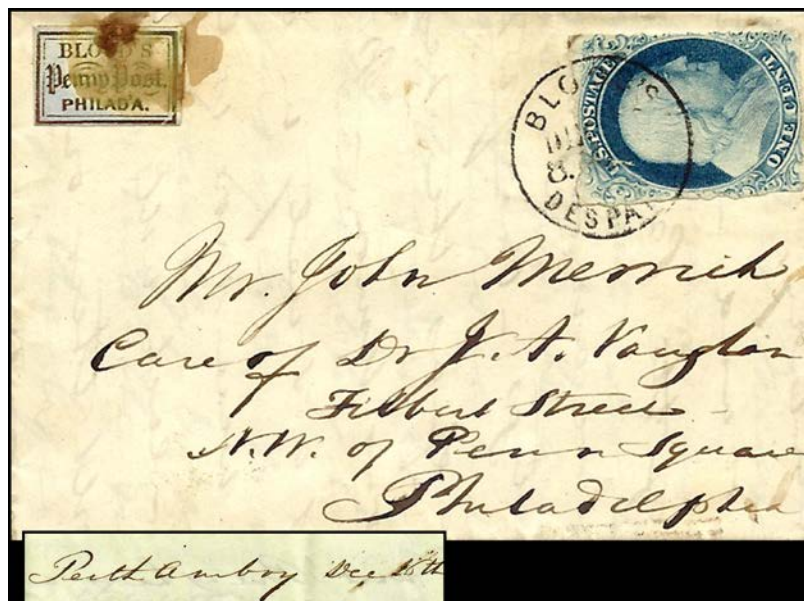 BLOOD'S
Penny Post.
PHILADA.
U.S. POSTAGE
ONE CENT
BLO
8
DESPA
Mr. John Merrick
Care of Dr J. A. Vaughan
Filbert Street
N.W. of Penn Square
Philadelphia
Perth Amboy Dec 18th